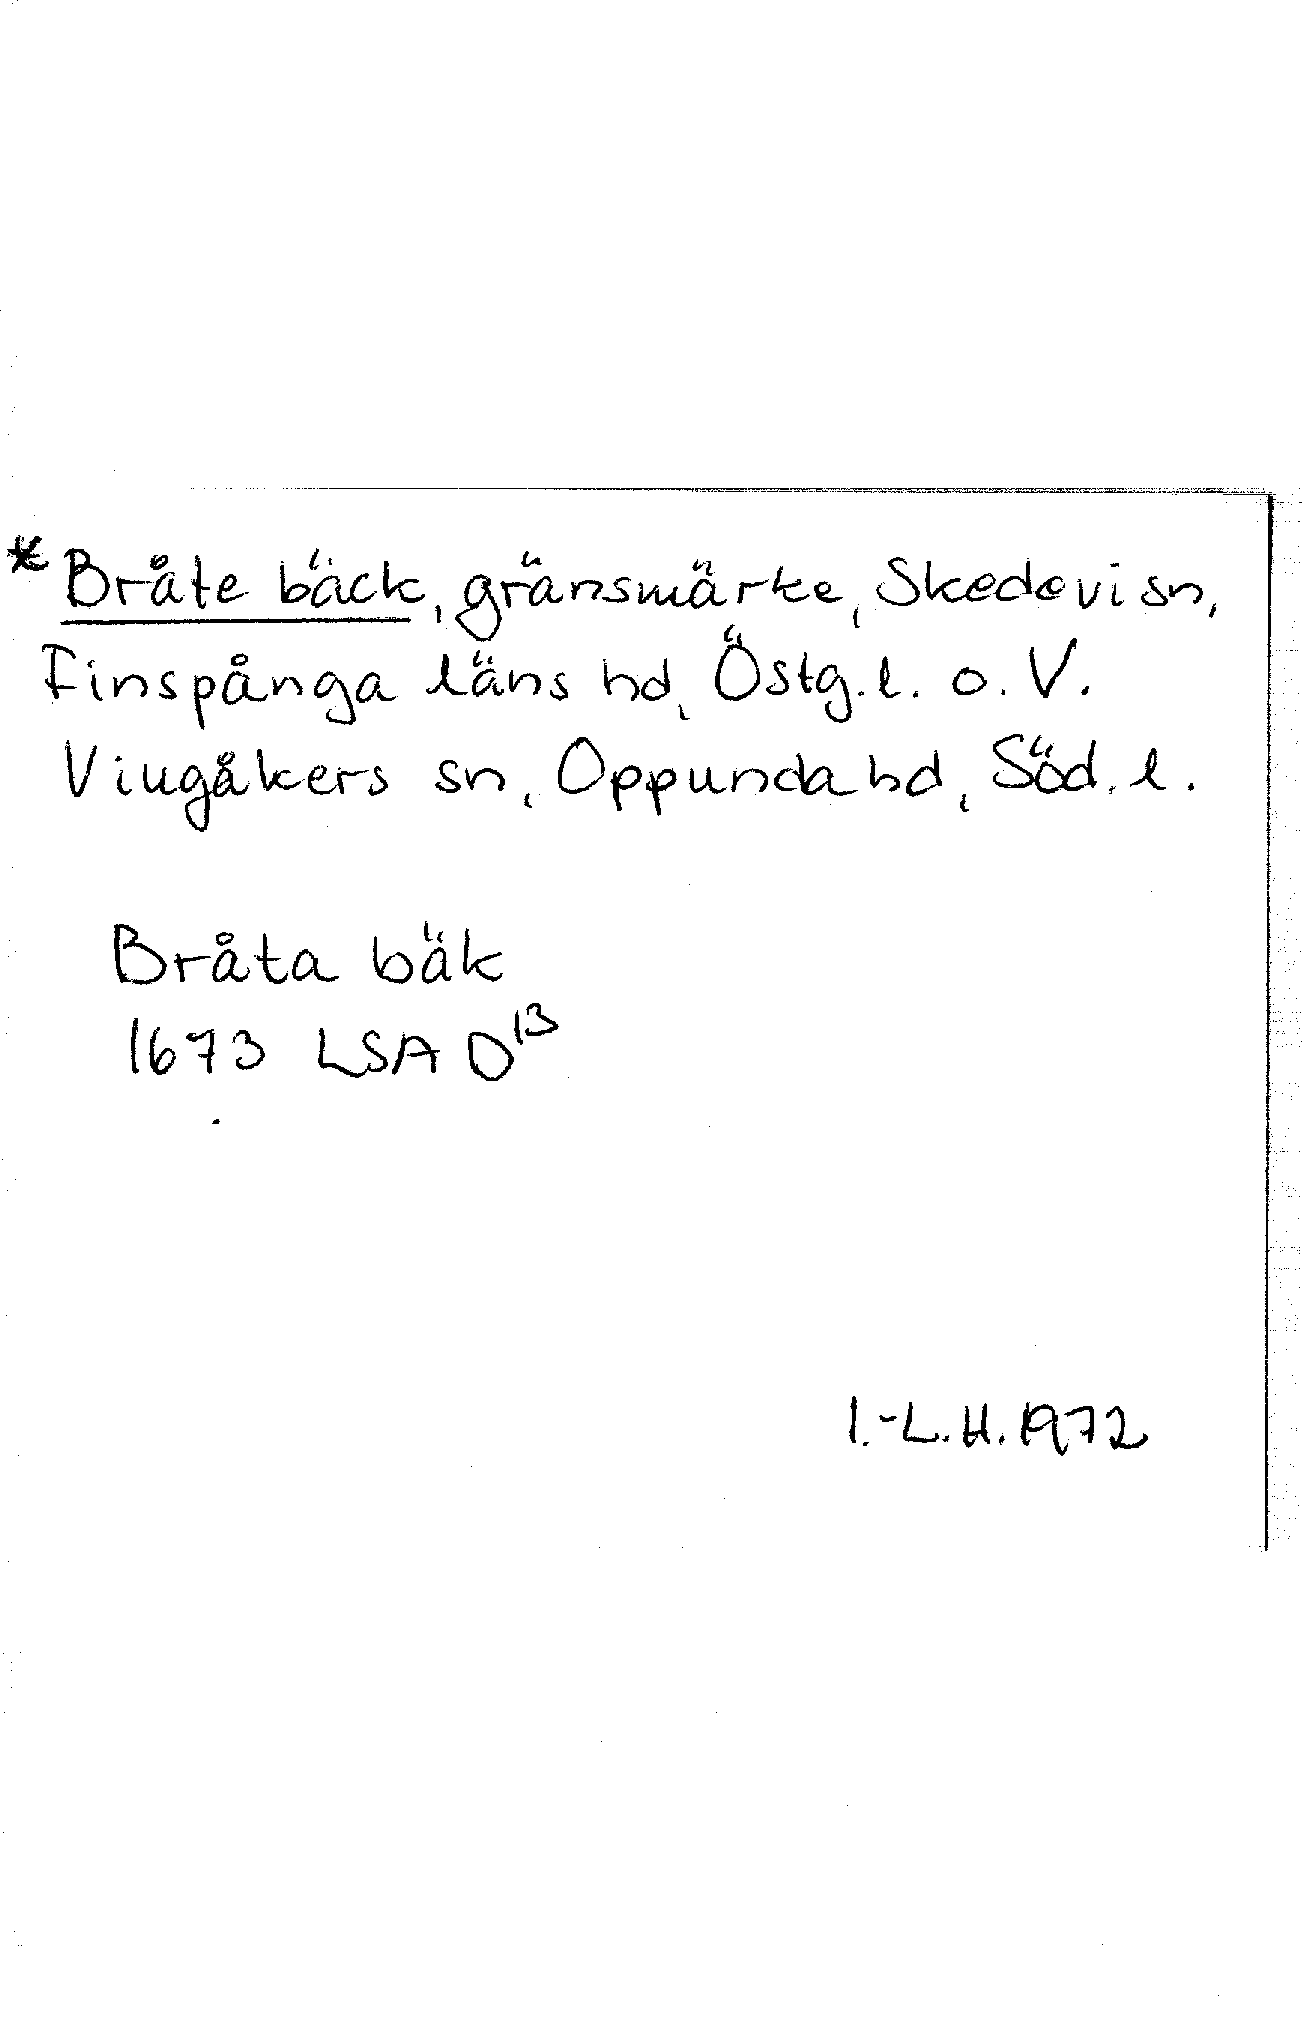 * Bråte bäck, gränsmärke, Skedevi sn,
Finspånga läns hd, Östg.l. o. V.
Vingåkers sn, Oppunda hd, Söd. l.
Bråta bäk
1673 LSA D¹³
I.-L.H. 1972